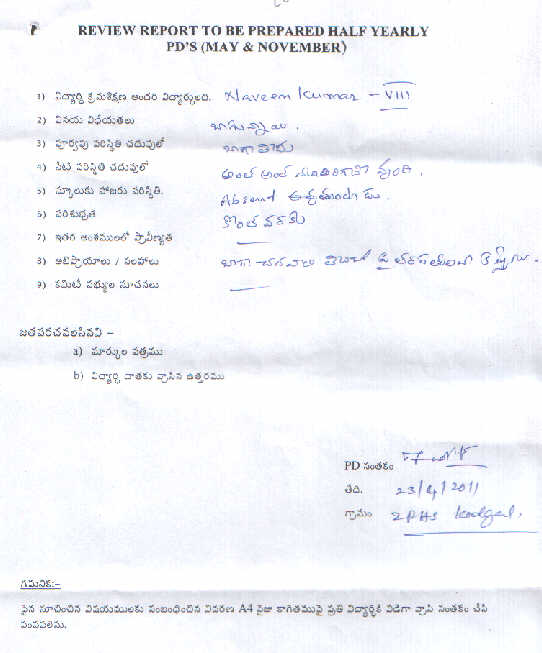 REVIEW REPORT TO BE PREPARED HALF YEARLY
PD'S (MAY & NOVEMBER)
1) విద్యార్థి క్రమశిక్షణ అందరి విద్యార్థులది. Naveen Kumar - VIII
2) వినయ విధేయతలు బాగున్నాయి.
3) పూర్వపు పరిస్థితి చదువులో
4) నేటి పరిస్థితి చదువులో
5) స్కూలుకు హాజరు పరిస్థితి. Absent అవుతుంటాడు.
6) పరిశుభ్రత కొంత వరకు
7) ఇతర అంశములలో ప్రావీణ్యత
8) అభిప్రాయాలు / సలహాలు బాగా చదవాలి
9) కమిటీ సభ్యుల సూచనలు
జతపరచవలసినవి –
a) మార్కుల పత్రము
b) విద్యార్థి దాతకు వ్రాసిన ఉత్తరము
PD సంతకం
తేది. 23/4/2011
గ్రామం ZPHS Kodgal.
గమనిక:-
పైన సూచించిన విషయములకు సంబంధించిన వివరణ A4 సైజు కాగితముపై ప్రతి విద్యార్థికి విడిగా వ్రాసి సంతకం చేసి
పంపవలెను.